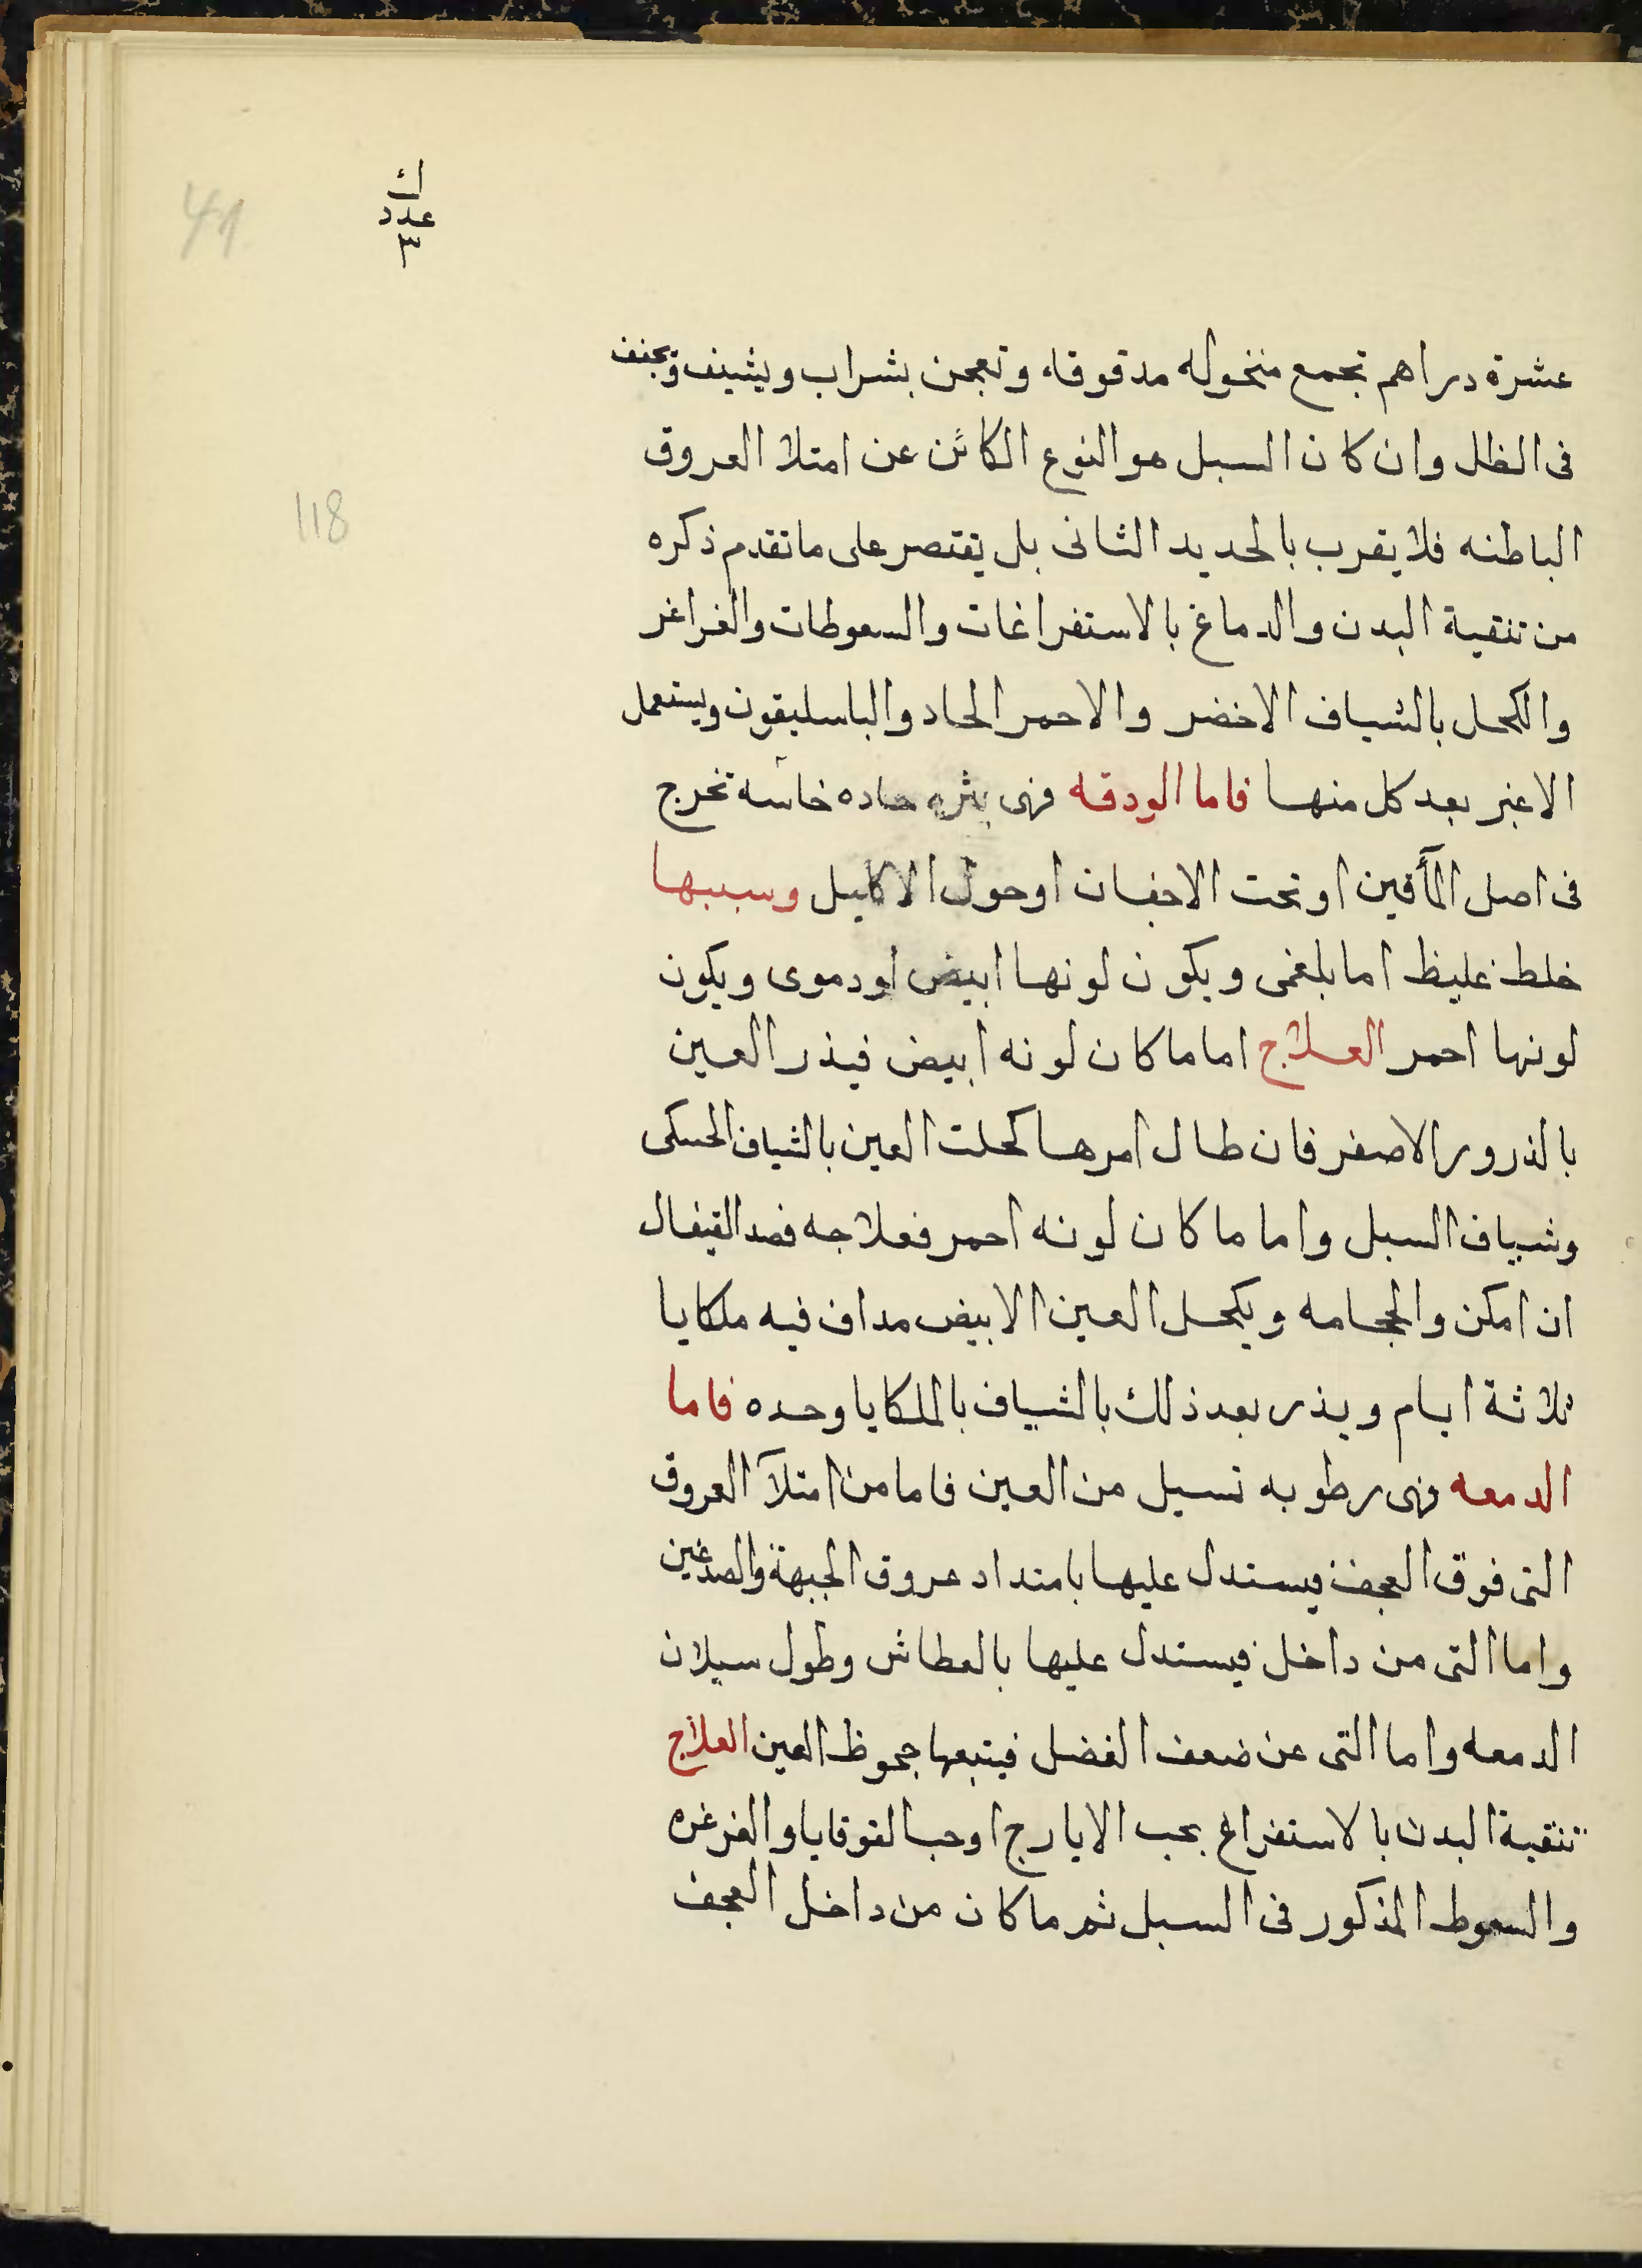 ك
عدد
٣
41
118
عشرة دراهم تجمع منخوله مدقوقه وتعجن بشراب ويشيف وتجفف
فى الظل وان كان السبل هو النوع الكائن عن امتلا العروق
الباطنه فلا يقرب بالحديد الثانى بل يقتصر على ما تقدم ذكره
من تنقية البدن والدماغ بالاستفراغات والسعوطات والغراغر
والكحل بالشياف الاخضر والاحمر الحاد والباسليقون ويستعمل
الاغبر بعد كل منها فاما الودقه فهى بثره حاده خاسه تخرج
فى اصل المآقين او تحت الاجفان او حول الاكليل وسببها
خلط غليظ اما بلغمى ويكون لونها ابيض او دموى ويكون
لونها احمر العلاج اما ما كان لونه ابيض فيذر العين
بالذرور الاصفر فان طال امرها كحلت العين بالشياف الحسكى
وشياف السبل واما ما كان لونه احمر فعلاجه فصد القيفال
ان امكن والحجامه ويكحل العين الابيض مداف فيه ملكايا
ثلاثة ايام ويذر بعد ذلك بالشياف بالملكايا وحده فاما
الدمعه فهى رطوبه تسيل من العين فاما من امتلآ العروق
التى فوق العجف فيستدل عليها بامتداد عروق الجبهة والصدغين
واما التى من داخل فيستدل عليها بالعطاش وطول سيلان
الدمعه واما التى عن ضعف الفضل فيتبعها جحوظ العين العلاج
تنقية البدن بالاستفراغ بحب الايارج او حب القوقايا والغرغره
والسعوط المذكور فى السبل ثم ما كان من داخل العجف